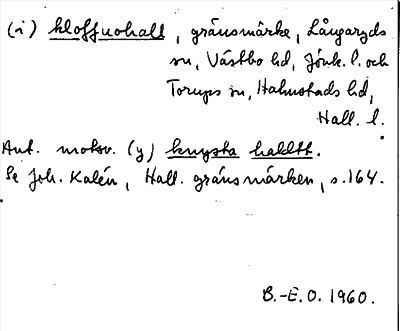 (i) kloffuohall, gränsmärke, Långaryds
sn, Västbo hd, Jönk. l. och
Torups sn, Halmstads hd,
Hall. l.
Ant. motsv. (y) knysta hallth.
Se Joh. Kalén, Hall. gränsmärken, s. 164.
B.-E.O. 1960.